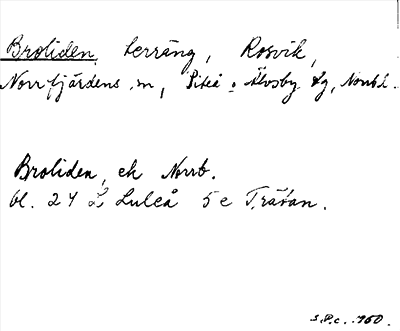 Broliden, terräng, Rosvik,
Norrfjärdens sn, Piteå o Älvsby tg, Nbtn l.
Broliden, ek Norrb.
bl. 24 L Luleå 5 e Träsan.
S.P.c. 1960.